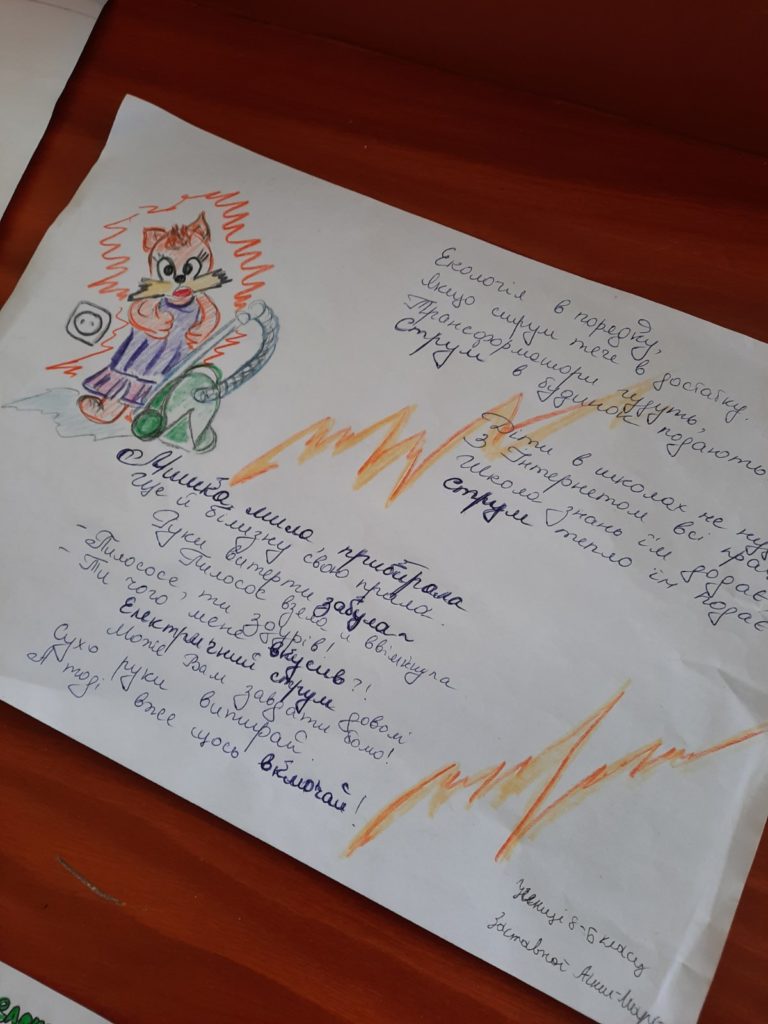 Екологія в порядку,
якщо струм тече в достатку.
Трансформатори гудуть,
Струм в будинок подають.
Діти в школах не
З Інтернетом всі
Школа знань їм додає
струм тепло їм подає
Мишка мила прибирала
Ще й білизну свою прала.
Руки витерти забула
Пилосос взяла й ввімкнула
- Пилососе, ти здурів!
- Ти чого мене вкусив?!
Електричний струм довомі
Може Вам завдати болю!
Сухо руки витирай
А тоді вже щось включай!
Учениці 8-Б класу
Заставної